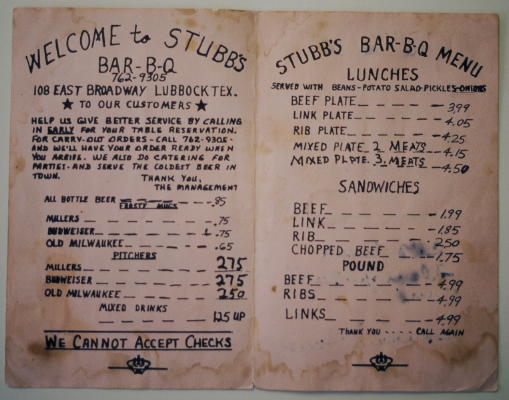 WELCOME to STUBB'S
BAR-B-Q
762-9305
108 EAST BROADWAY LUBBOCK TEX.
★ TO OUR CUSTOMERS ★
HELP US GIVE BETTER SERVICE BY CALLING
IN EARLY FOR YOUR TABLE RESERVATION.
FOR CARRY-OUT ORDERS - CALL 762-9305-
AND WE'LL HAVE YOUR ORDER READY WHEN
YOU ARRIVE. WE ALSO DO CATERING FOR
PARTIES- AND SERVE THE COLDEST BEER IN
TOWN.
THANK YOU,
THE MANAGEMENT
ALL BOTTLE BEER .85
FROSTY MUGS
MILLERS .75
BUDWEISER .75
OLD MILWAUKEE .65
PITCHERS
MILLERS 275
BUDWEISER 275
OLD MILWAUKEE 250
MIXED DRINKS
125 UP
WE CANNOT ACCEPT CHECKS
STUBB'S BAR-B-Q MENU
LUNCHES
SERVED WITH BEANS-POTATO SALAD-PICKLES-ONIONS
BEEF PLATE 3.99
LINK PLATE 4.05
RIB PLATE 4.25
MIXED PLATE 2 MEATS 4.15
MIXED PLATE 3 MEATS 4.50
SANDWICHES
BEEF 1.99
LINK 1.85
RIB 250
CHOPPED BEEF 1.75
POUND
BEEF 4.99
RIBS 4.99
LINKS 4.99
THANK YOU ---- CALL AGAIN